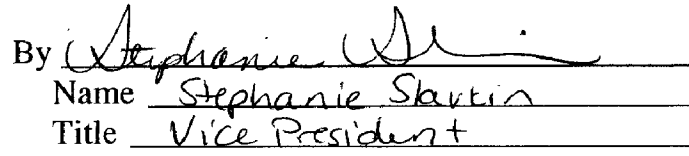 By Stephanie
Name Stephanie Slavkin
Title Vice President